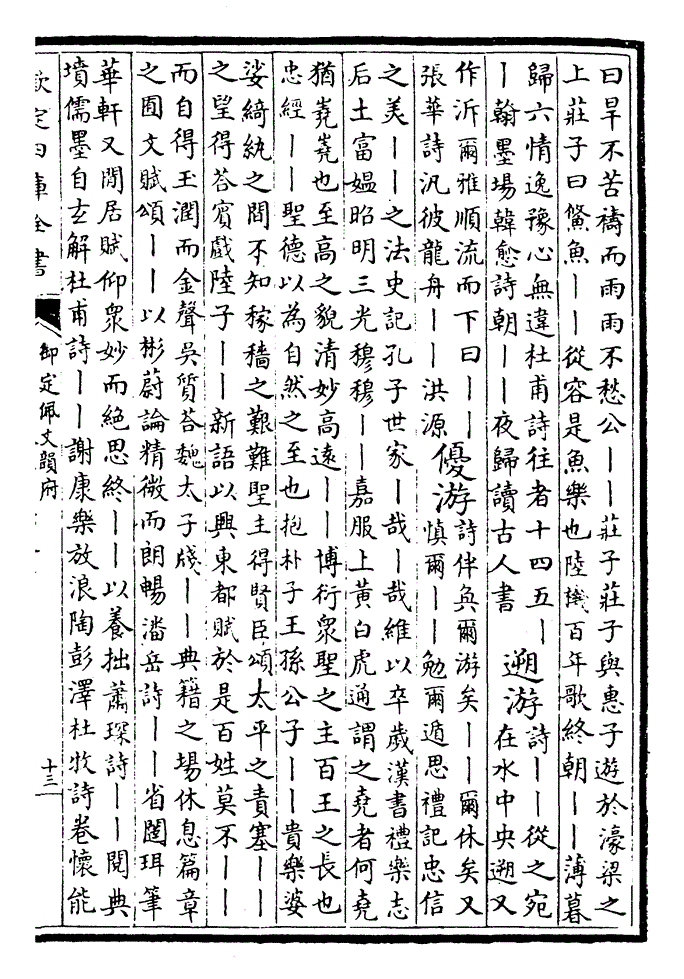 曰旱不苦禱而雨雨不愁公丨丨莊子莊子與惠子遊於濠梁之
上莊子曰鯈魚丨丨從容是魚樂也陸機百年歌終朝丨丨薄暮
歸六情逸豫心無違杜甫詩往者十四五丨
丨翰墨場韓愈詩朝丨丨夜歸讀古人書
遡游
詩丨丨從之宛
在水中央遡又
作泝爾雅順流而下曰丨丨
張華詩汎彼龍舟丨丨洪源
優游
詩伴奐爾游矣丨丨爾休矣又
慎爾丨丨勉爾遁思禮記忠信
之美丨丨之法史記孔子世家丨哉丨哉維以卒歲漢書禮樂志
后土富媼昭明三光穆穆丨丨嘉服上黃白虎通謂之堯者何堯
猶嶤嶤也至高之貌清妙高遠丨丨博衍衆聖之主百王之長也
忠經丨丨聖德以為自然之至也抱朴子王孫公子丨丨貴樂婆
娑綺紈之間不知稼穡之艱難聖主得賢臣頌太平之責塞丨丨
之望得荅賓戲陸子丨丨新語以興東都賦於是百姓莫不丨丨
而自得玉潤而金聲吳質荅魏太子牋丨丨典籍之場休息篇章
之囿文賦頌丨丨以彬蔚論精微而朗暢潘岳詩丨丨省闥珥筆
華軒又閒居賦仰衆妙而絕思終丨丨以養拙蕭琛詩丨丨閱典
墳儒墨自玄解杜甫詩丨丨謝康樂放浪陶彭澤杜牧詩卷懷能
欽定四庫全書
御定佩文韻府
十三